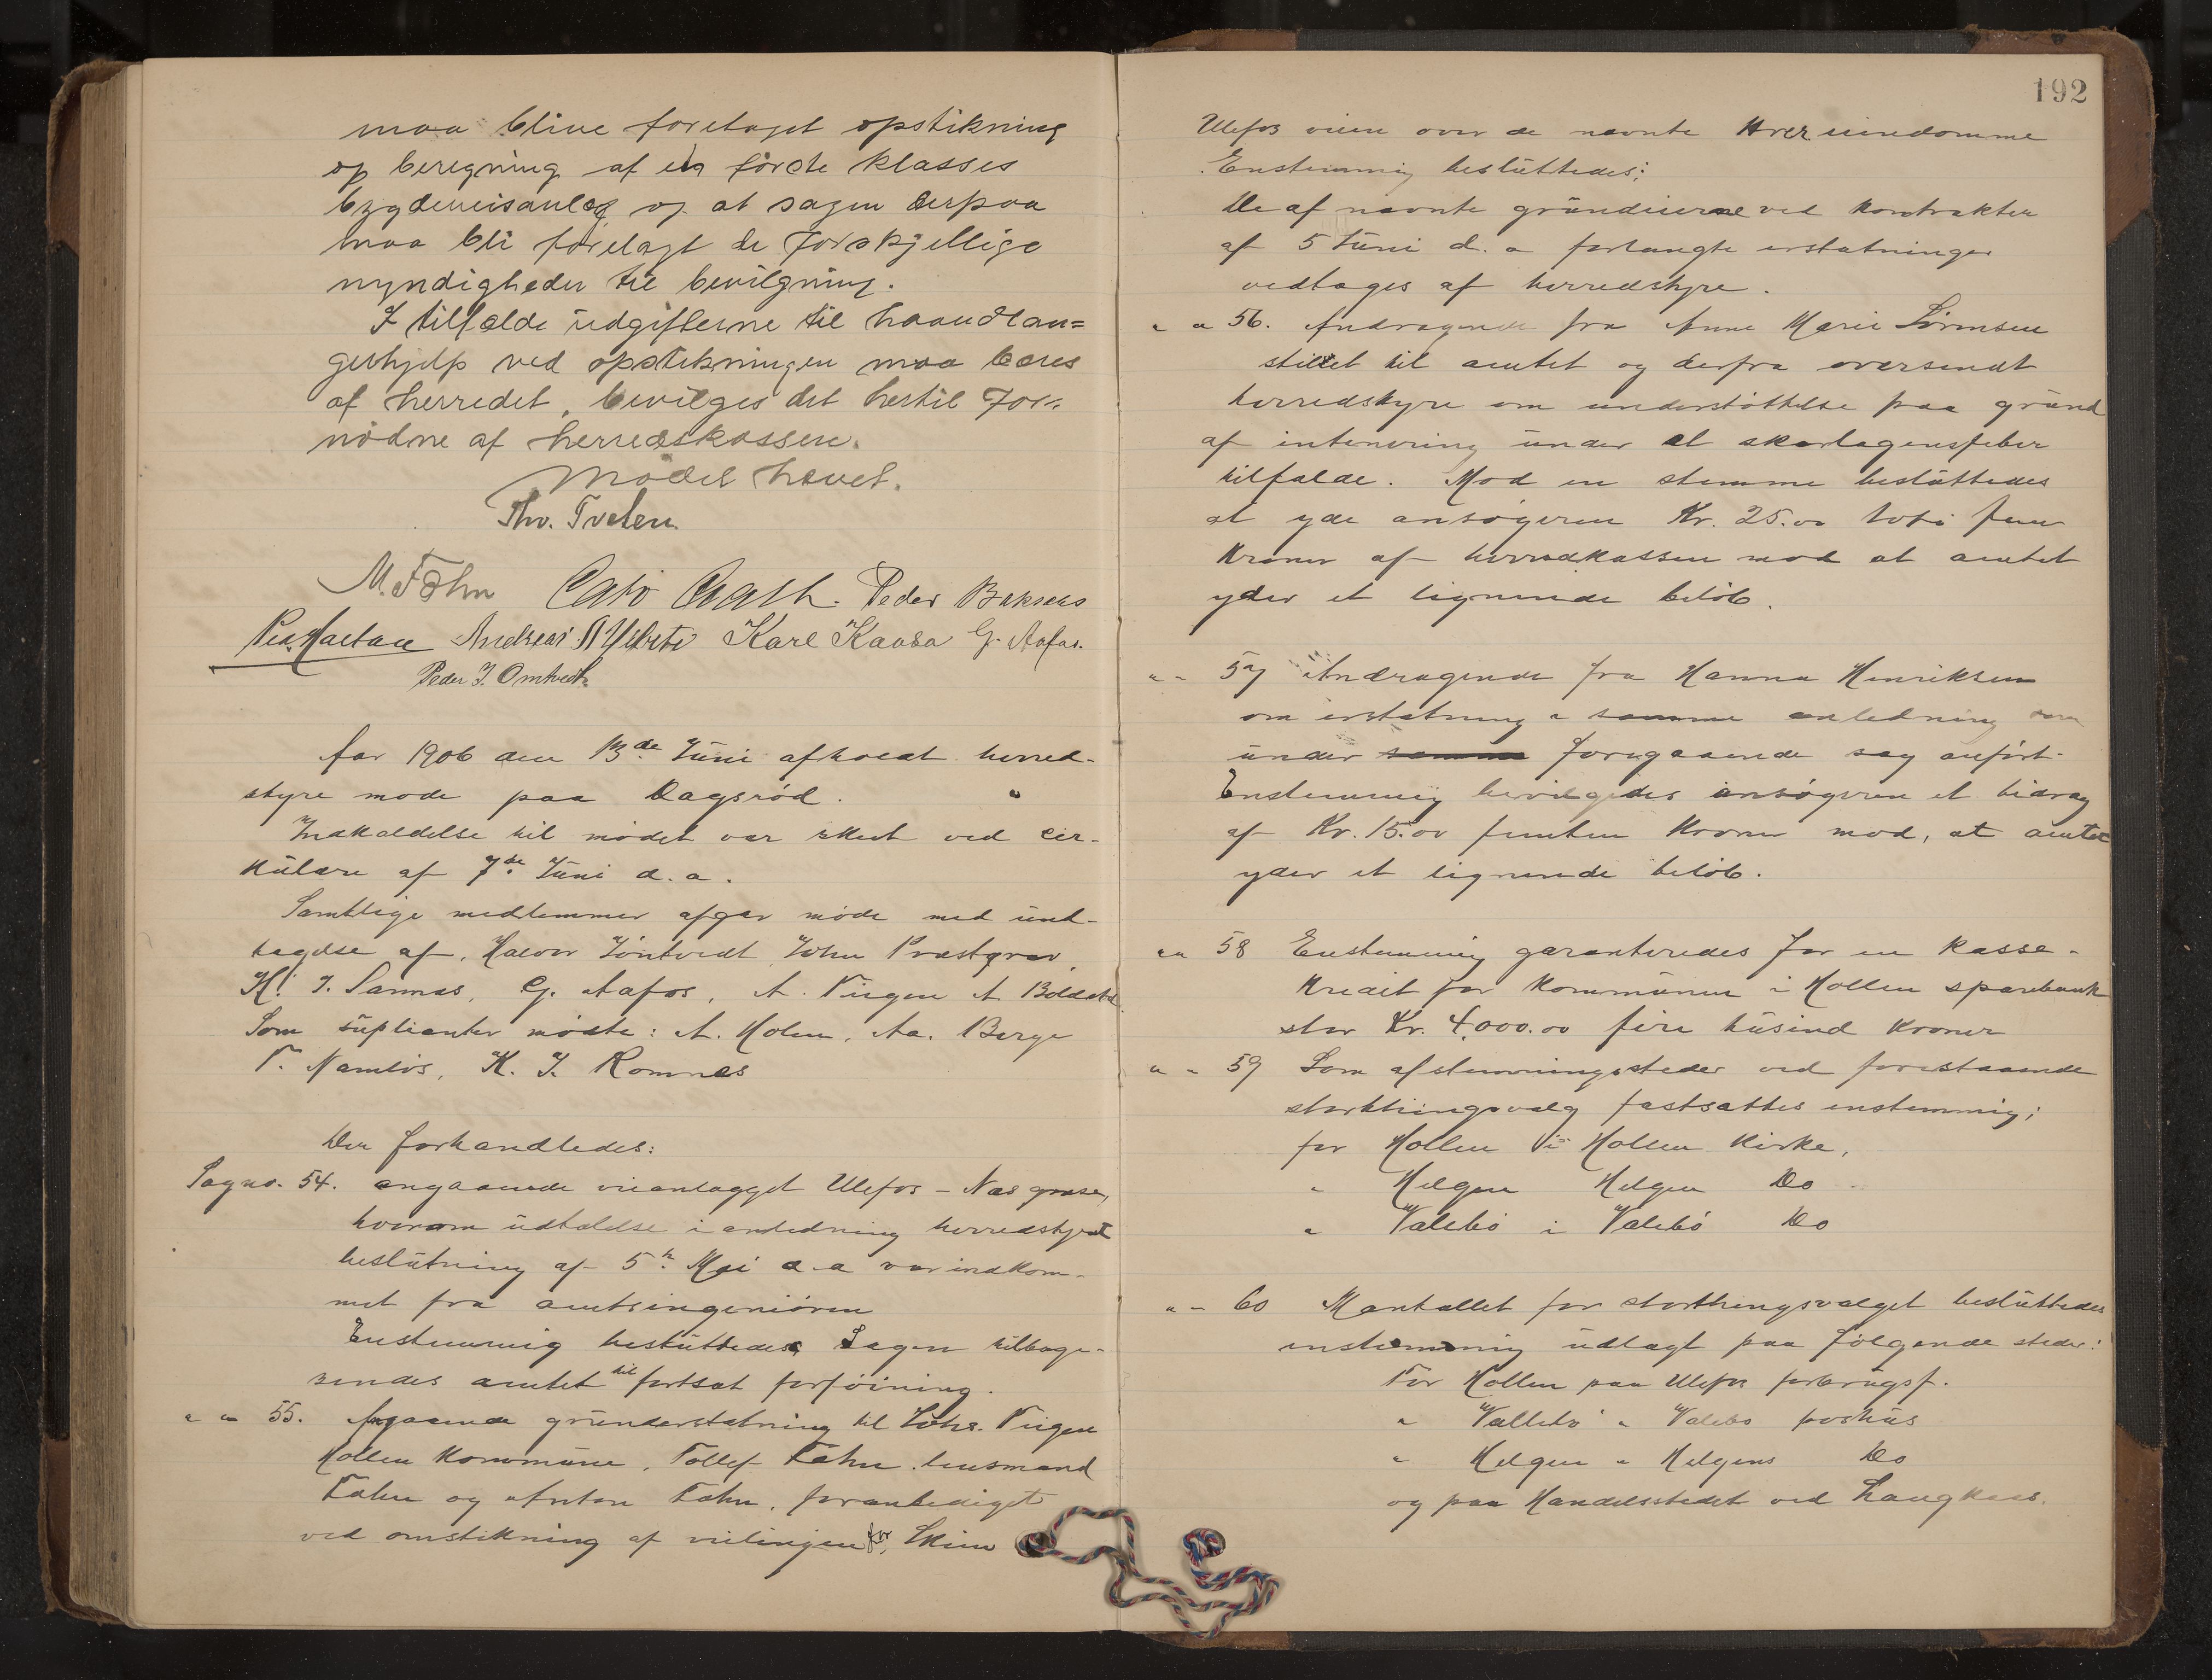 maa blive foretaget opstikning
og beregning af en første klasses
bygdeveisanlæg og at sagen derpaa
maa bli forelagt de forskjellige
myndigheder til bevilgning.
I tilfælde udgifterne til haandlan=
gerhjelp ved opstikningen maa bæres
af herredet, bevilges det hertil for-
nødne af herredskassen.
Mødet hævet.
Thv. Tveten
M.Føhn Cato Aall. Peder Baksaas
Andreas Karl Kaasa G. Aafos.
Peder J. Omtvedt
Aar 1906 den 13de Juni afholdt herred-
styre møde paa Dagsrød.
Indkaldelse til mødet var skeet ved cir-
kulære af 7de Juni d.a.
Samtlige medlemmer afgav møde med und-
tagelse af. Halvor Tøntvedt John Præstgrav,
H. J. Sannæs, G. Aafos, A. Teigen A Boldstad
Som suplianter mødte: A. Holen, Aa. Berge
T. Namløs, K. J. Romnæs
Der forhandledes:
Sagno. 54. angaaende veianlægget Ulefos - Næs grænse,
hvorom udtalelse i anledning herredstyrets
beslutning af 5te Mai d.a var indkom-
met fra amtsingeniøren
Enstemmig besluttedes Sagen tilbage-
sendes amtet til fortsat forføining.
" " 55. Angaaende grunderstatning til Johs. Teigen
Hollen Kommune, Tollef Fæhn lensmand
Fæhn og Anton Fæhn, foranlediget
ved omstikning af veilinjen for Skien
192
Ulefos veien over de nævnte eiendomme
Enstemmig besluttedes:
De af nævnte grundeierne ved kontrakter
af 5 Juni d. a forlangte erstatninger
vedtages af herredstyre.
" " 56. Andragende fra Anne Marie Sørensen
stillet til amtet og derfra oversendt
herredstyre om understøttelse paa grund
af internering under et skarlagensfeber
tilfælde. Mod en stemme besluttedes
at yde ansøgeren Kr. 25.00 toti fem
Kroner af herredkassen mod at amtet
yder et lignende beløb.
" " 57 Andragende fra Hanna Henriksen
om erstatning i samme anledning som
under samme foregaaende sag anført.
Enstemmig bevilgedes ansøgeren et bidrag
af Kr. 15.00 femten Kroner mod, at amtet
yder et lignende beløb.
" " 58 Enstemmig garanteredes for en Kasse-
Kredit for Kommunen i Hollen sparebank
stor Kr. 4,000.00 fire tusind Kroner
" " 59 Som afstemningssteder ved forestaaende
storthingsvalg fastsattes enstemmig:
for Hollen i Hollen Kirke,
" Helgen Helgen Do
" Valebø i Valebø Do
" " 60 Mantallet for storthingsvalget besluttedes
enstemmig udlagt paa følgende steder:
For Hollen paa Ulefos forbrugsf.
" Vallebø " Valebø posthus
" Helgen " Helgens Do
og paa Handelsstedet ved Langkaas.